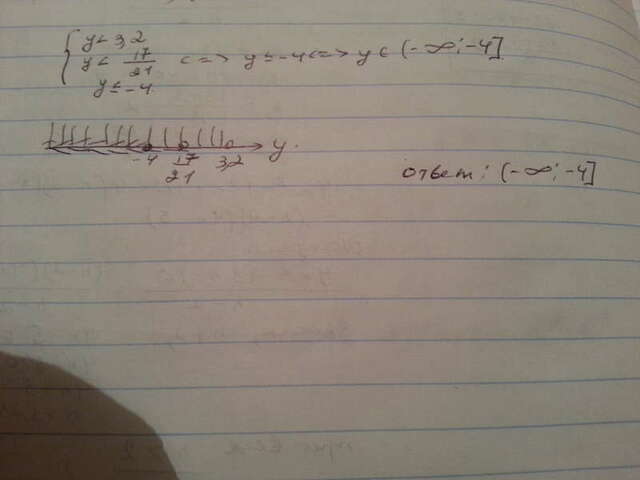 { y < 3,2
y < 17/21 <=> y ≤ -4 <=> y ∈ (-∞; -4]
y ≤ -4
-4 17/21 3,2 y.
ответ: (-∞; -4]